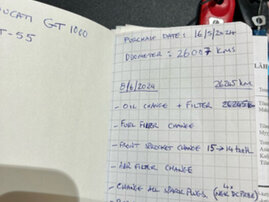 DUCATI GT 1000
T-55
PURCHASE DATE: 16/5/2024
ODOMETER: 26007 KMS
8/6/2024 26265 km
- OIL CHANGE + FILTER 26265km
- FUEL FILTER CHANGE
- FRONT SPROCKET CHANGE 15→14 teeth
- AIR FILTER CHANGE
- CHANGE ALL SPARK PLUGS. (4x